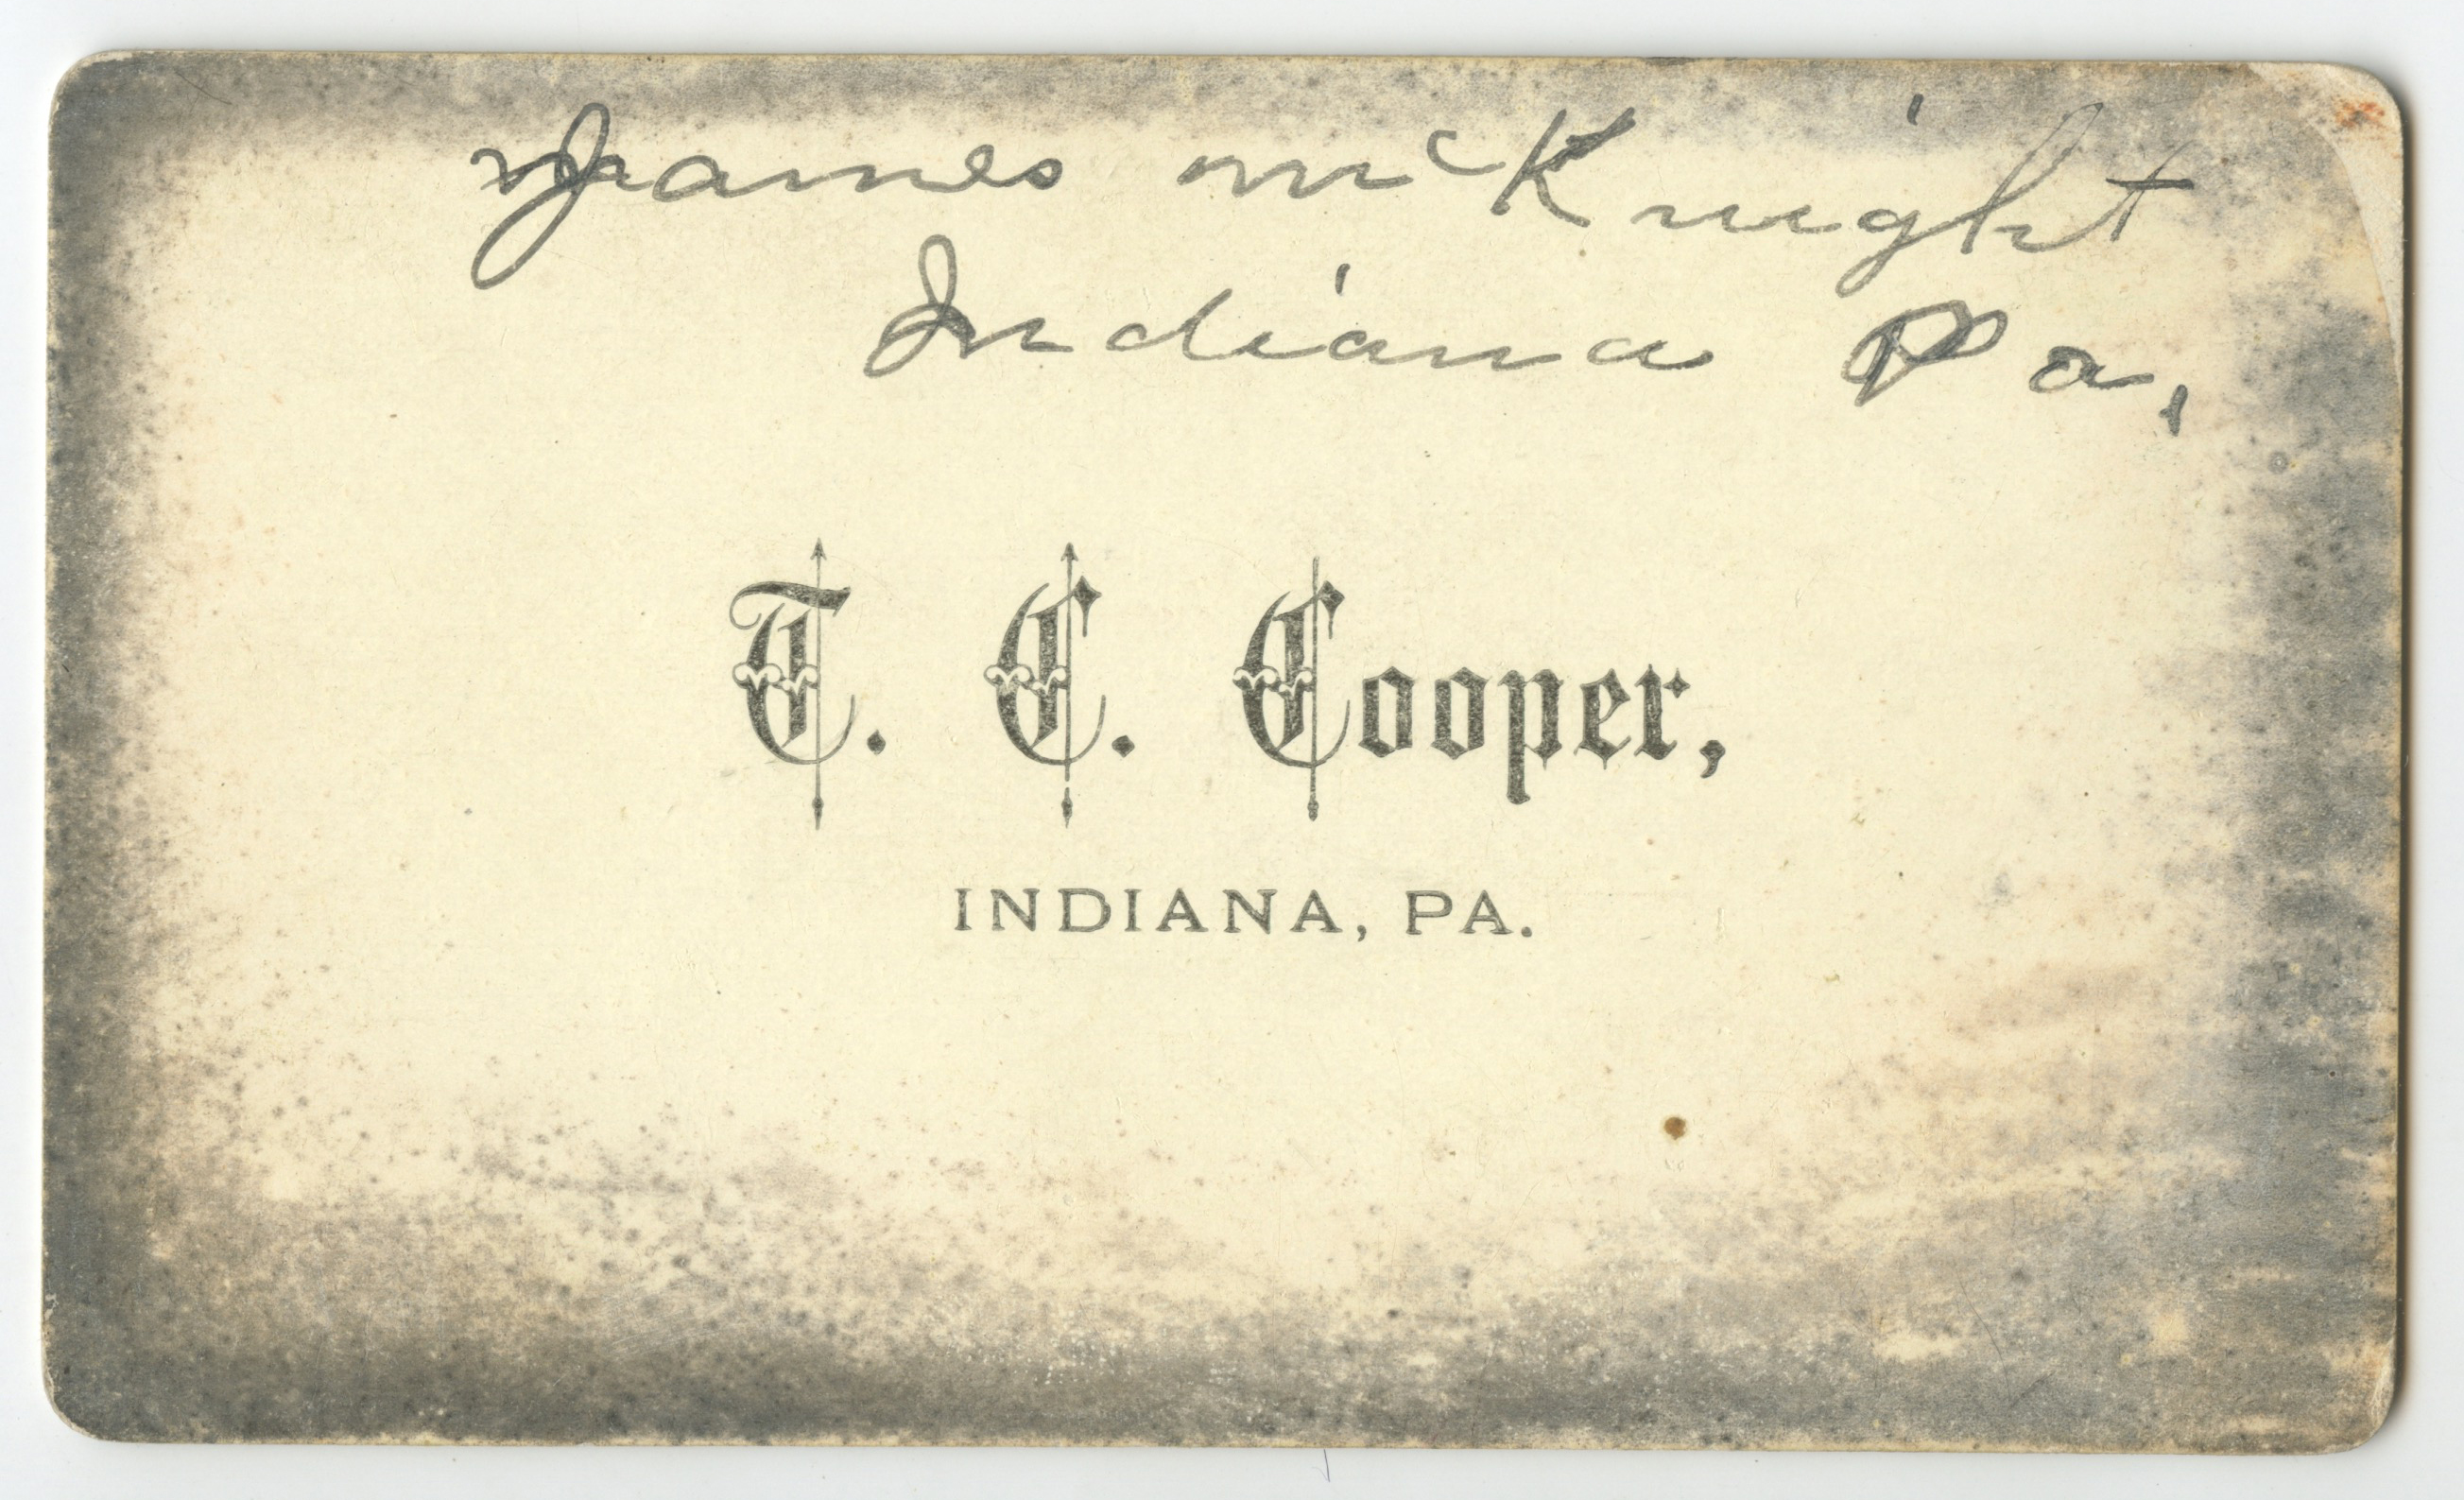 James McKnight
Indiana Pa.
T. C. Cooper,
INDIANA, PA.